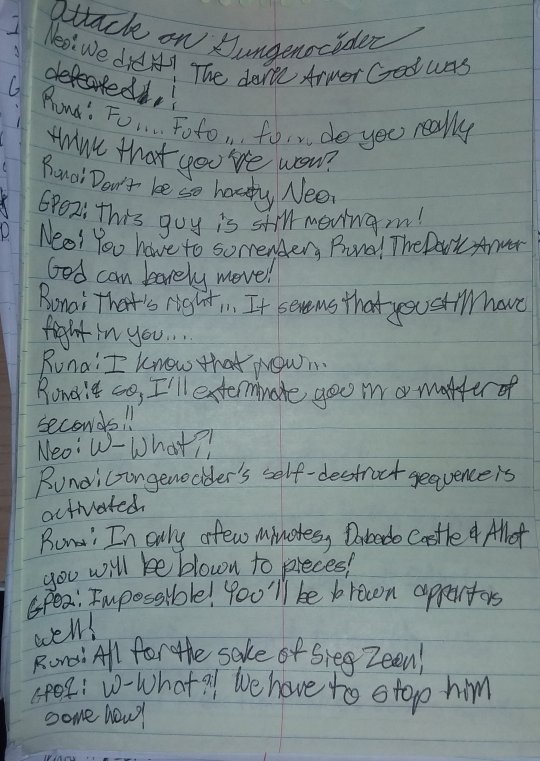 Attack on Gungenocider
Neo: We did it! The dark Armor God was
defeated!
Runa: Fu.... Fufu... fu... do you really
think that you've won?
Runa: Don't be so hasty, Neo.
GP02: This guy is still moving...!
Neo: You have to surrender, Runa! The Dark Armor
God can barely move!
Runa: That's right... It seems that you still have
fight in you....
Runa: I know that now...
Runa: & so, I'll exterminate you in a matter of
seconds!!
Neo: W-What?!
Runa: Gungenocider's self-destruct sequence is
activated.
Runa: In only a few minutes, Dabado Castle & All of
you will be blown to pieces!
GP02: Impossible! You'll be brown appart as
well!
Runa: All for the sake of Sieg Zeon!
GP02: W-What?! We have to stop him
some how!